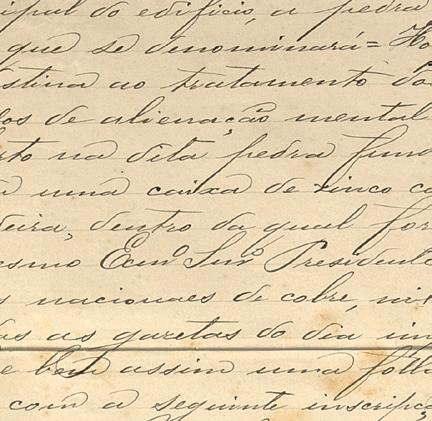 ipal do edificio, a pedra
que se denominará = Ho
stina ao tratamento do
os de alienação mental
rto na dita pedra fun
uma caixa de zinco co
deira, dentro da qual for
esmo Exmo Snr Presidente
s nacionaes de cobre, ni
as as gazetas do dia im
e bem assim uma folh
com a seguinte inscripç